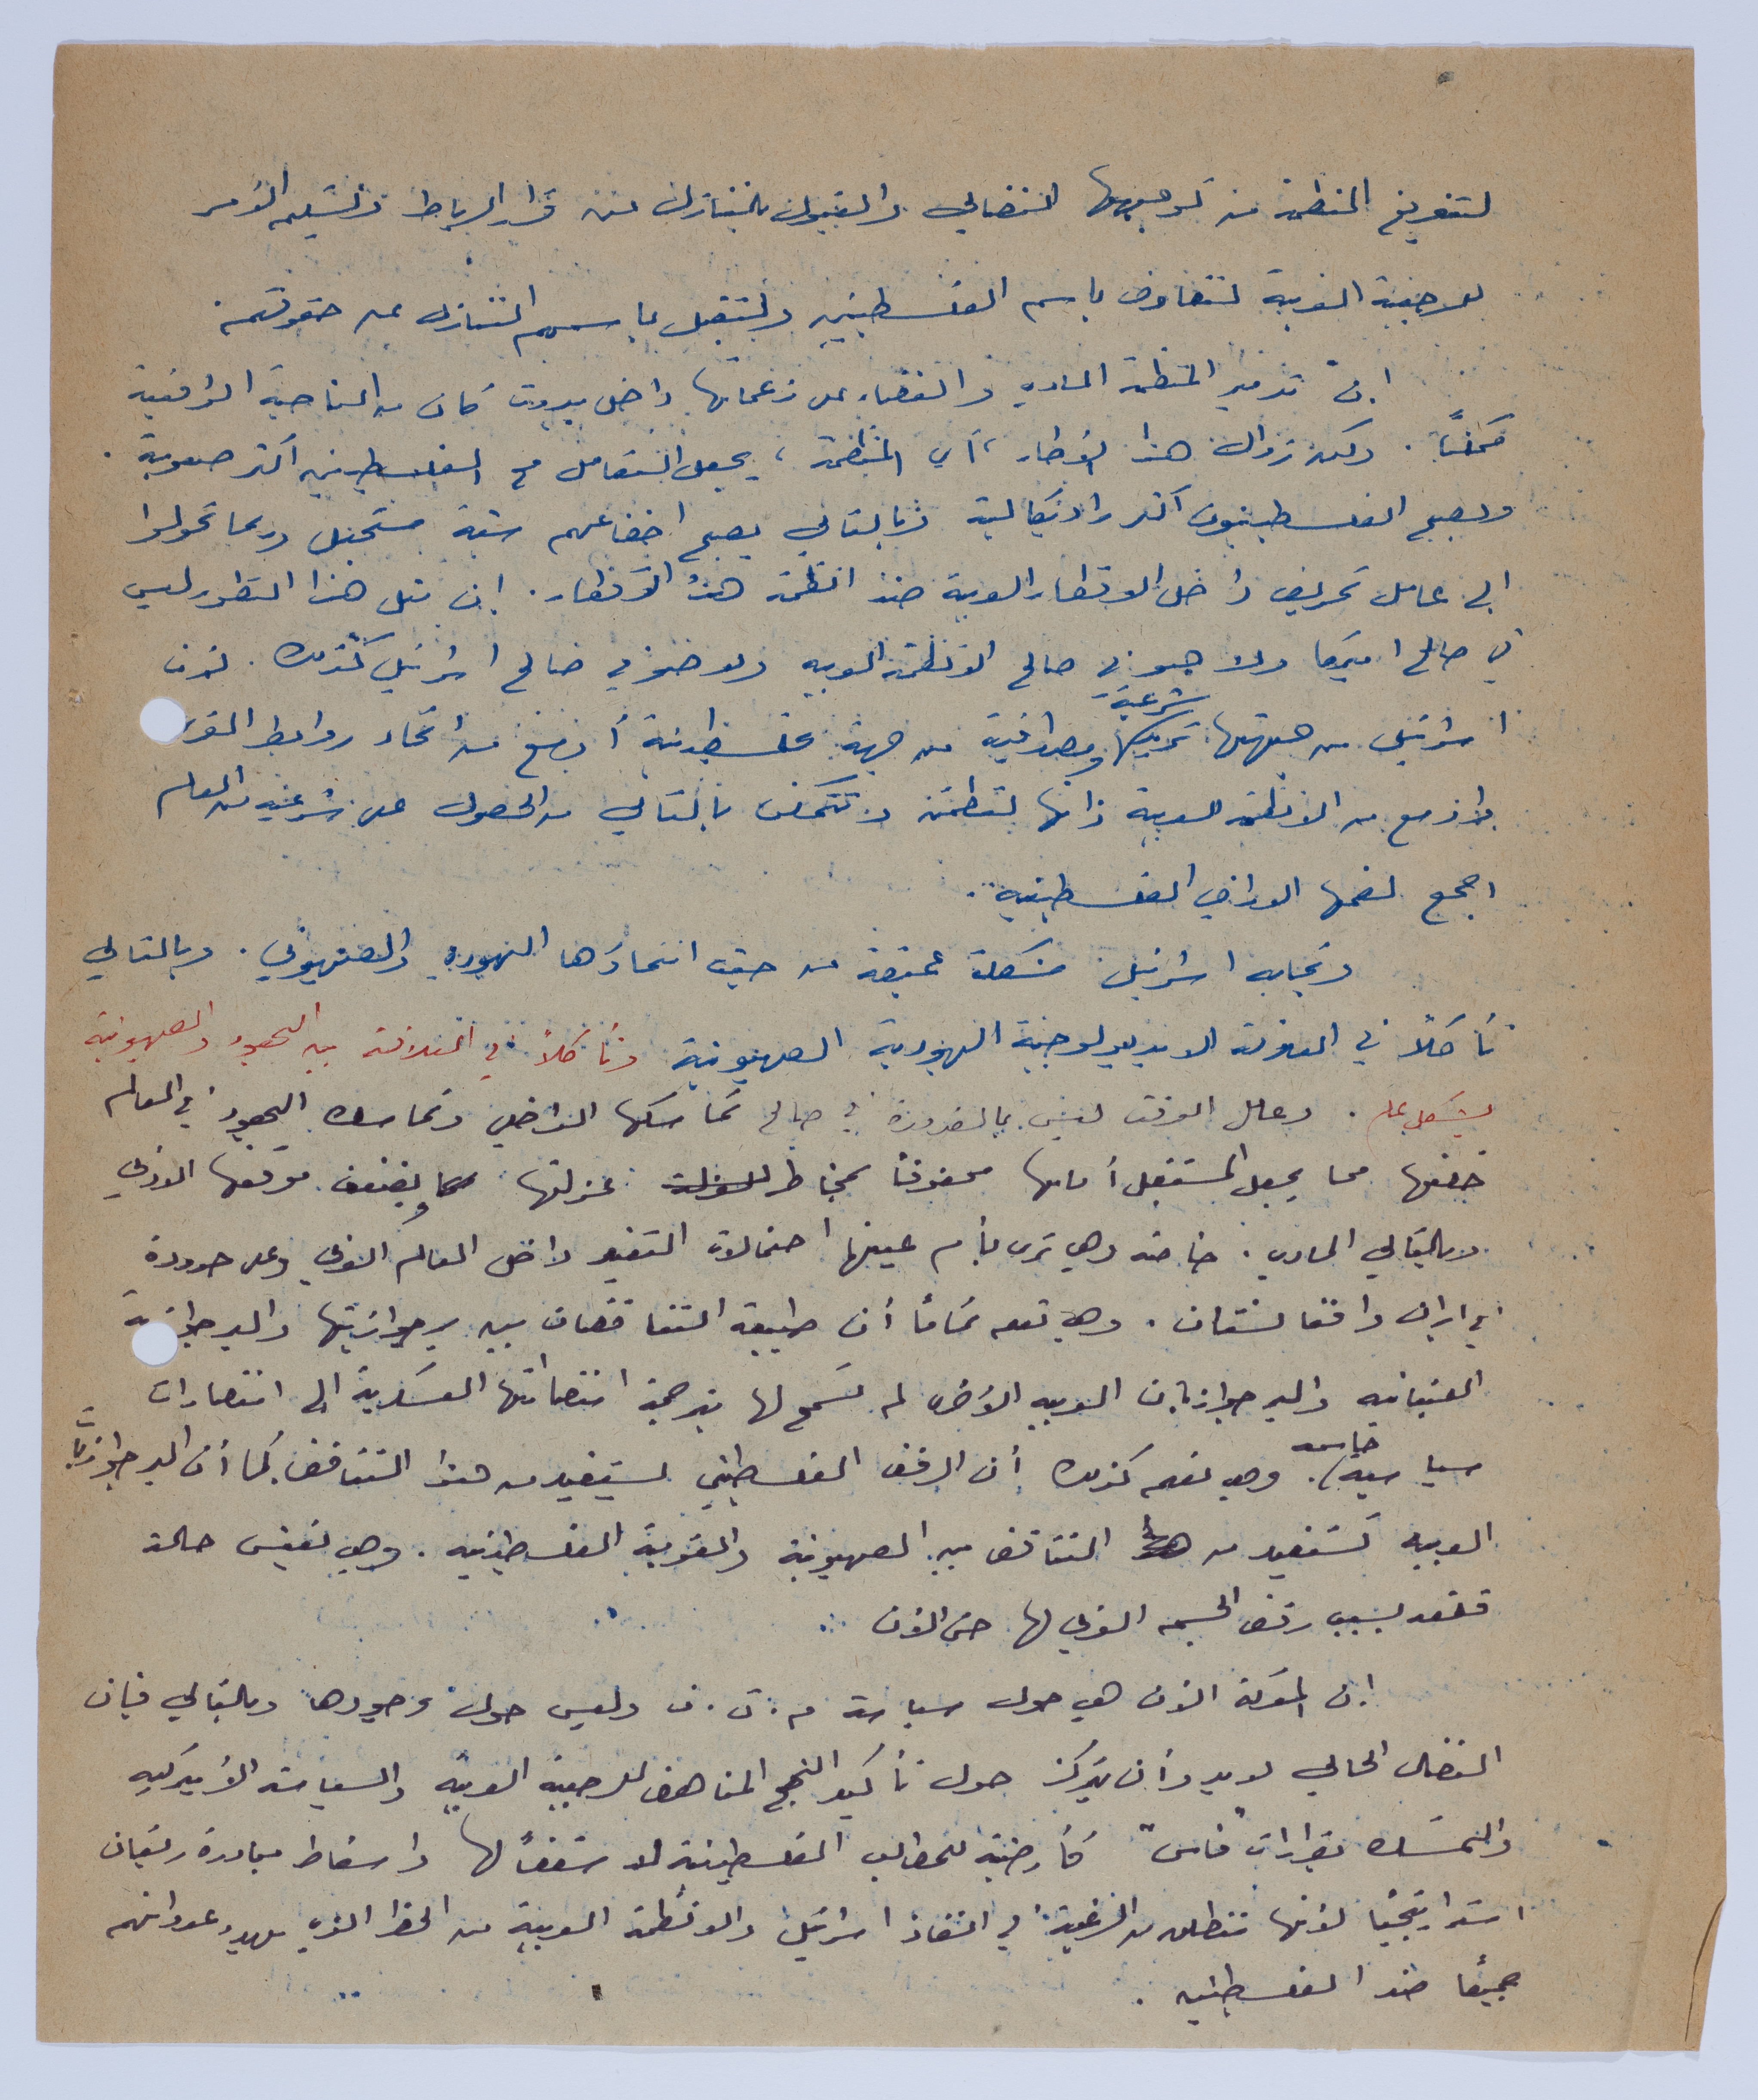 لتفريغ المنظمة من توجيهها النضالي والقبول بالتنازل عن قرار الرباط وتسليم الأمر
للرجعية العربية لتتفاوض باسم الفلسطينيين ولتقبل باسمهم التنازل عن حقوقهم.
إن تدمير المنظمة المادي والقضاء على زعمائها داخل بيروت كان من الناحية الواقعية
ممكناً. ولكن زوال هذا الإطار، أي المنظمة، يجعل التعامل مع الفلسطينيين أكثر صعوبة.
ويصبح الفلسطينيون أكثر راديكالية وبالتالي يصبح اخضاعهم شبه مستحيل وربما تحولوا
إلى عامل تحريض داخل الاقطار العربية ضد انظمة هذه الأقطار. إن مثل هذا التطور ليس
في صالح اميركا ولا هو في صالح الانظمة العربية ولا هو في صالح اسرائيل كذلك. لأن
اسرائيل من جهتها تريد شرعية ومصداقية من جهة فلسطينية أوسع من اتحاد روابط القرى
وأوسع من الانظمة العربية ذاتها لتطمئن وتتمكن بالتالي من الحصول على شرعية من العالم
اجمع لضمها الاراضي الفلسطينية.
وتجابه اسرائيل مشكلة عميقة من حيث انتماؤها اليهودي والصهيوني. وبالتالي
تأكلاً في العلاقة الايديولوجية اليهودية الصهيونية وتأكلاً في العلاقة بين اليهود والصهيونية
بشكل عام. وعامل الوقت ليس بالضرورة في صالح تماسكها الداخلي وتماسك اليهود في العالم
خلفها مما يجعل المستقبل أمامها محفوفاً بمخاطر عزلتها ويضعف موقفها الادبي
وبالتالي المادي. خاصة وهي ترى بأم عينها احتمالات التغير داخل العالم العربي وعلى حدوده
في ايران وافغانستان. وهي تعلم تماماً أن طبيعة التناقضات بين برجوازيتها والبرجوازية
اللبنانية والبرجوازيات العربية الأخرى لم تسمح لها بترجمة انتصاراتها العسكرية إلى انتصارات
سياسية حاسمة. وهي تعلم كذلك أن الرفض الفلسطيني يستفيد من هذا التناقض كما أن البرجوازيات
العربية تستفيد من التناقض بين الصهيونية والقومية الفلسطينية. وهي تعيش حالة
بسبب رفض الجسم العربي لها حتى الآن
إن المعركة الآن هي حول سياسة م.ت.ف وليس حول وجودها وبالتالي فإن
النضال الحالي لا بد وأن يتركز حول تأكيد النهج المناهض للرجعية العربية والسياسة الأميركية
والتمسك بقرارات "فاس" كأرضية للمطالب الفلسطينية لا سقفاً لها واسقاط مبادرة ريغان
استراتيجياً لأنها تنطلق من الرغبة في انقاذ اسرائيل والانظمة العربية من الخطر الذي يهدد عدوانهم
جميعاً ضد الفلسطينيين.